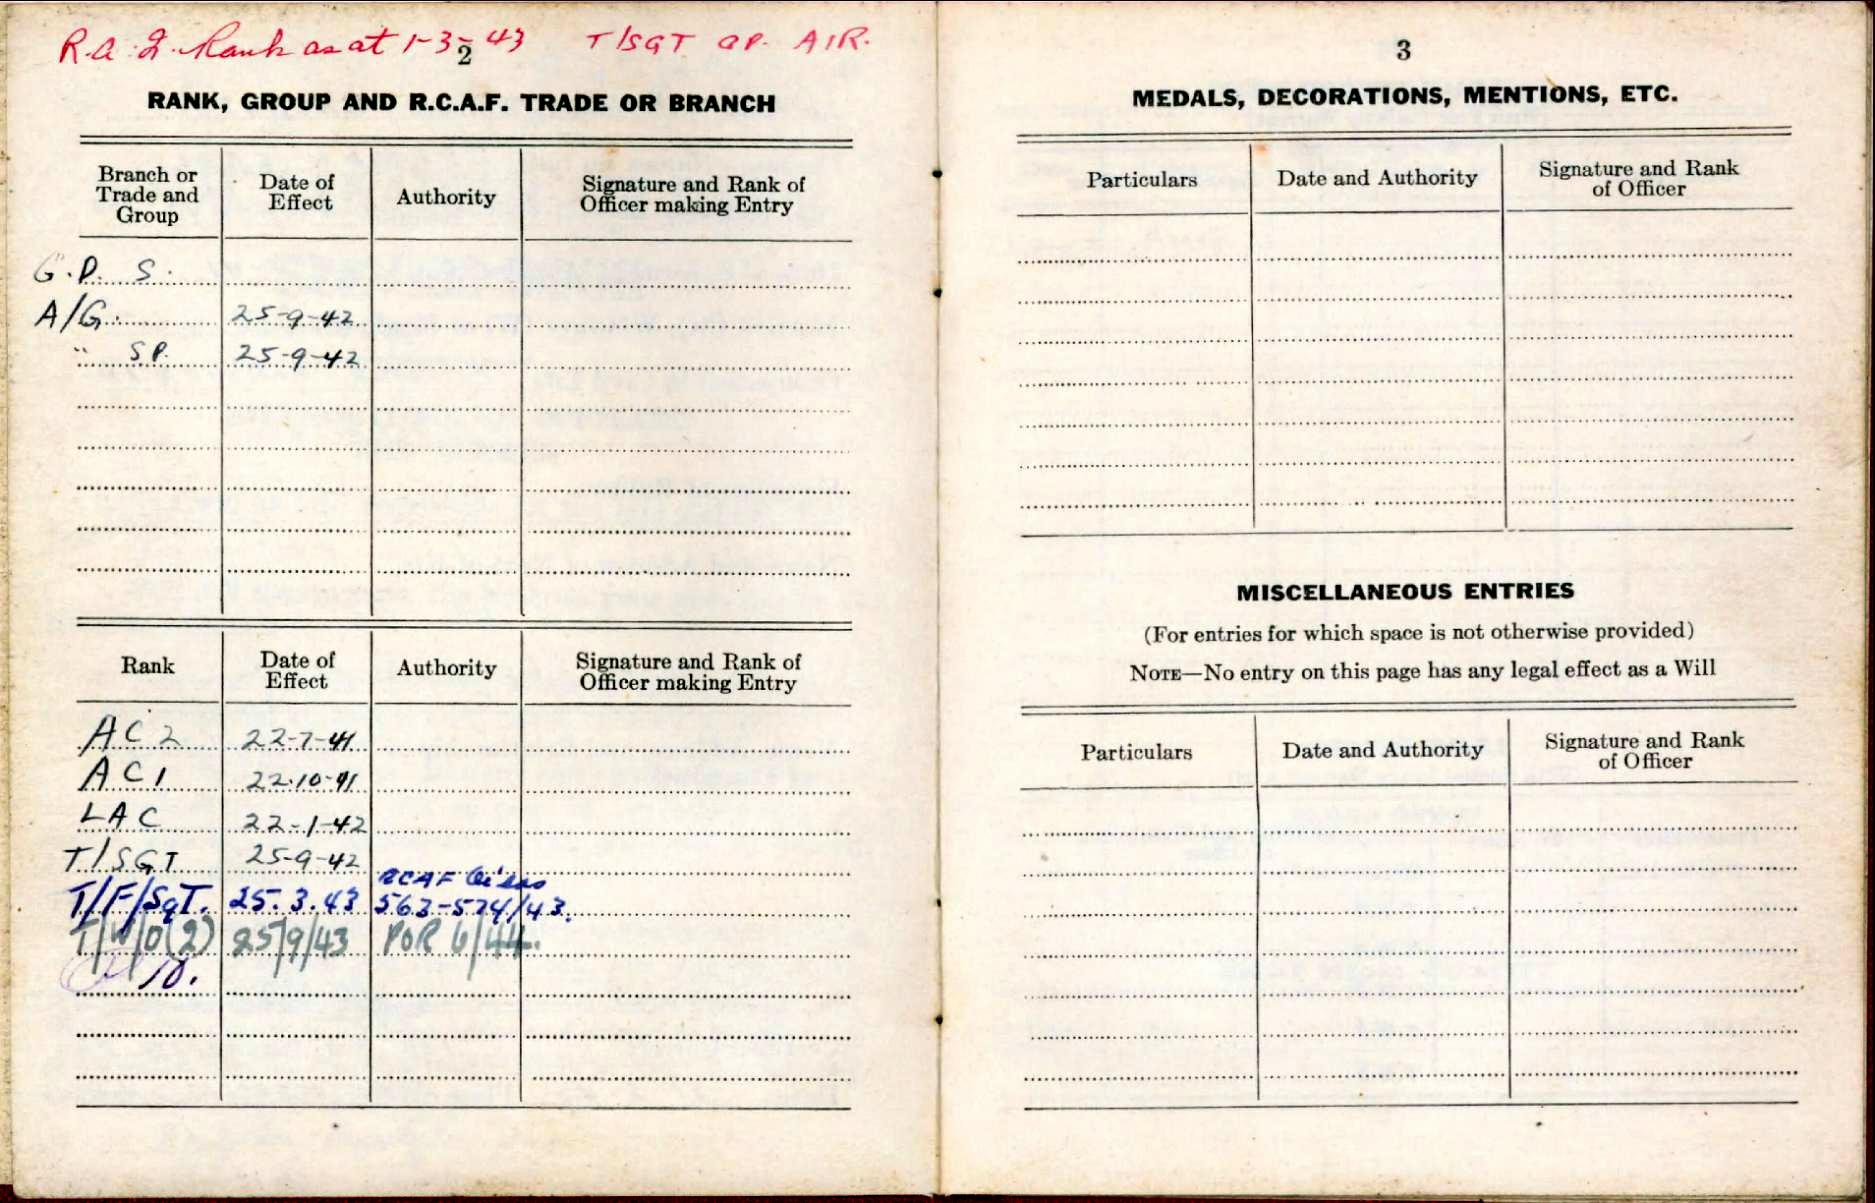 R.A.F. Rank as at 1-3-43 T/SGT GP. AIR.
2
RANK, GROUP AND R.C.A.F. TRADE OR BRANCH
Branch or Trade and Group Date of Effect Authority Signature and Rank of Officer making Entry
G.D. S.
A/G. 25-9-42
" S.P. 25-9-42
Rank Date of Effect Authority Signature and Rank of Officer making Entry
AC2 22-7-41
AC1 22-10-41
LAC 22-1-42
T/SGT 25-9-42
T/F/SgT. 25.3.43 RCAF O'seas 563-574/43.
T/W/O(2) 25/9/43 POR 6/44.
3
MEDALS, DECORATIONS, MENTIONS, ETC.
Particulars Date and Authority Signature and Rank of Officer
MISCELLANEOUS ENTRIES
(For entries for which space is not otherwise provided)
NOTE—No entry on this page has any legal effect as a Will
Particulars Date and Authority Signature and Rank of Officer